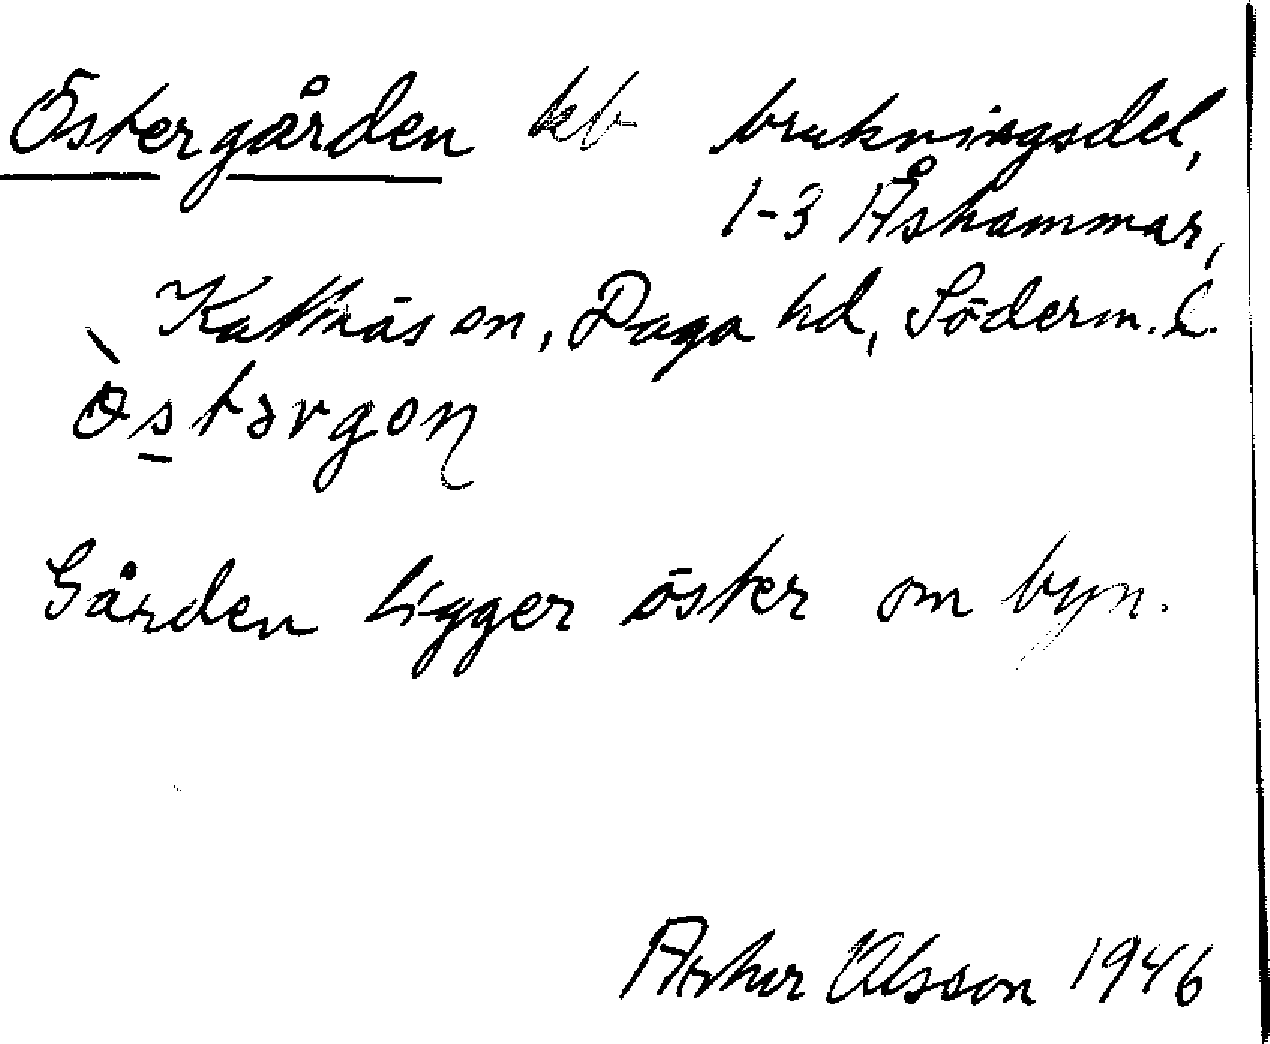 Östergården kb brukningsdel,
1-3 Åshammar,
Kattnäs sn, Daga hd, Söderm. l.
Östərgon
Gården ligger öster om byn.
Arthur Olsson 1946